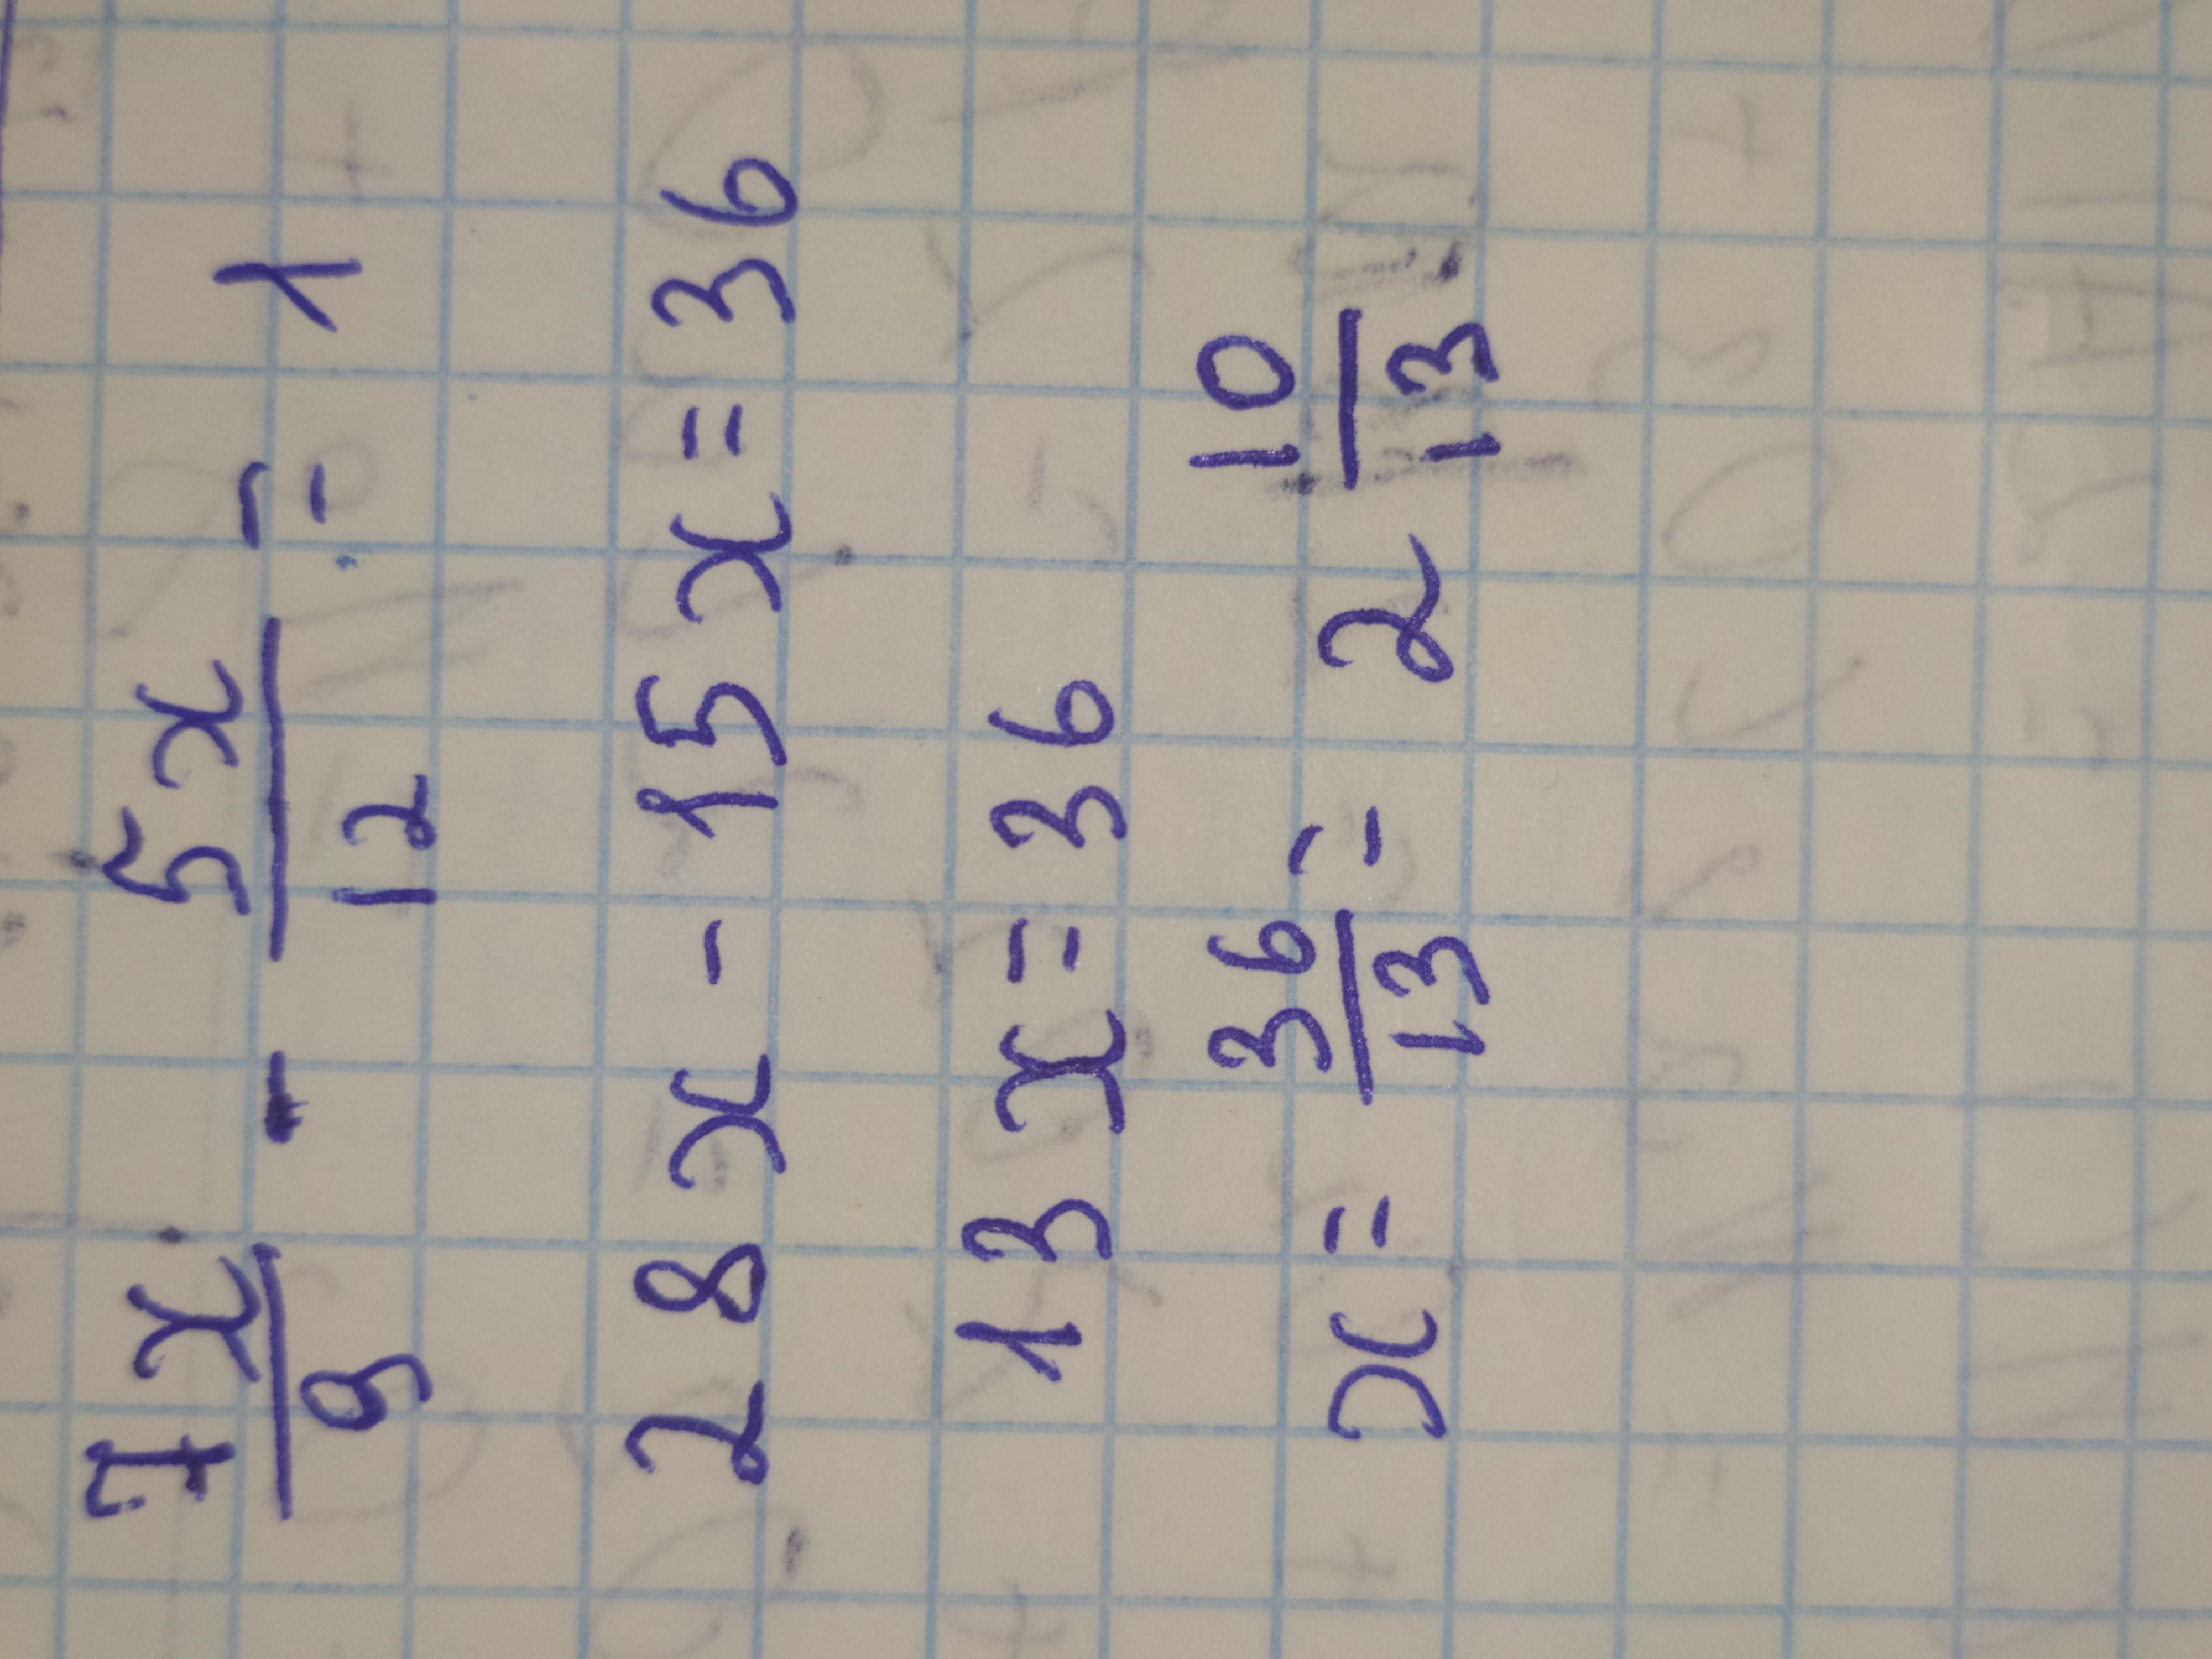 7x/9 - 5x/12 = 1
28x - 15x = 36
13x = 36
x = 36/13 = 2 10/13